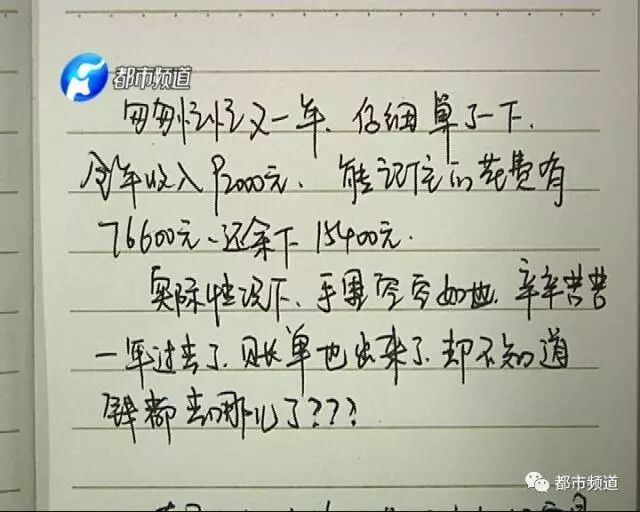 都市频道
匆匆忙忙又一年，仔细算了一下，
全年收入92000元，能记住的花费有
76600元、还余下15400元.
实际情况下，手里空空如也，辛辛苦苦
一年过去了，账单也出来了，却不知道
钱都去哪儿了???
都市频道